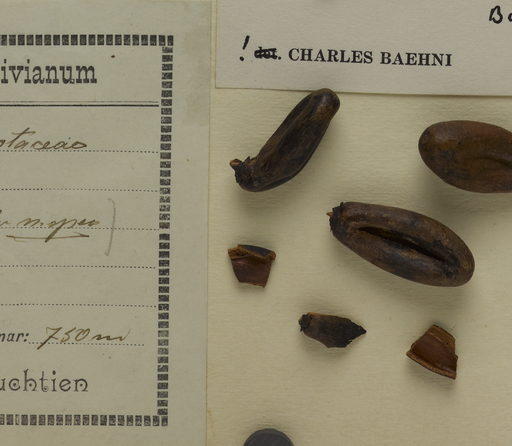 ivianum
otaceae
mapeo
nar: 750 m
uchtien
Ba
! det. CHARLES BAEHNI